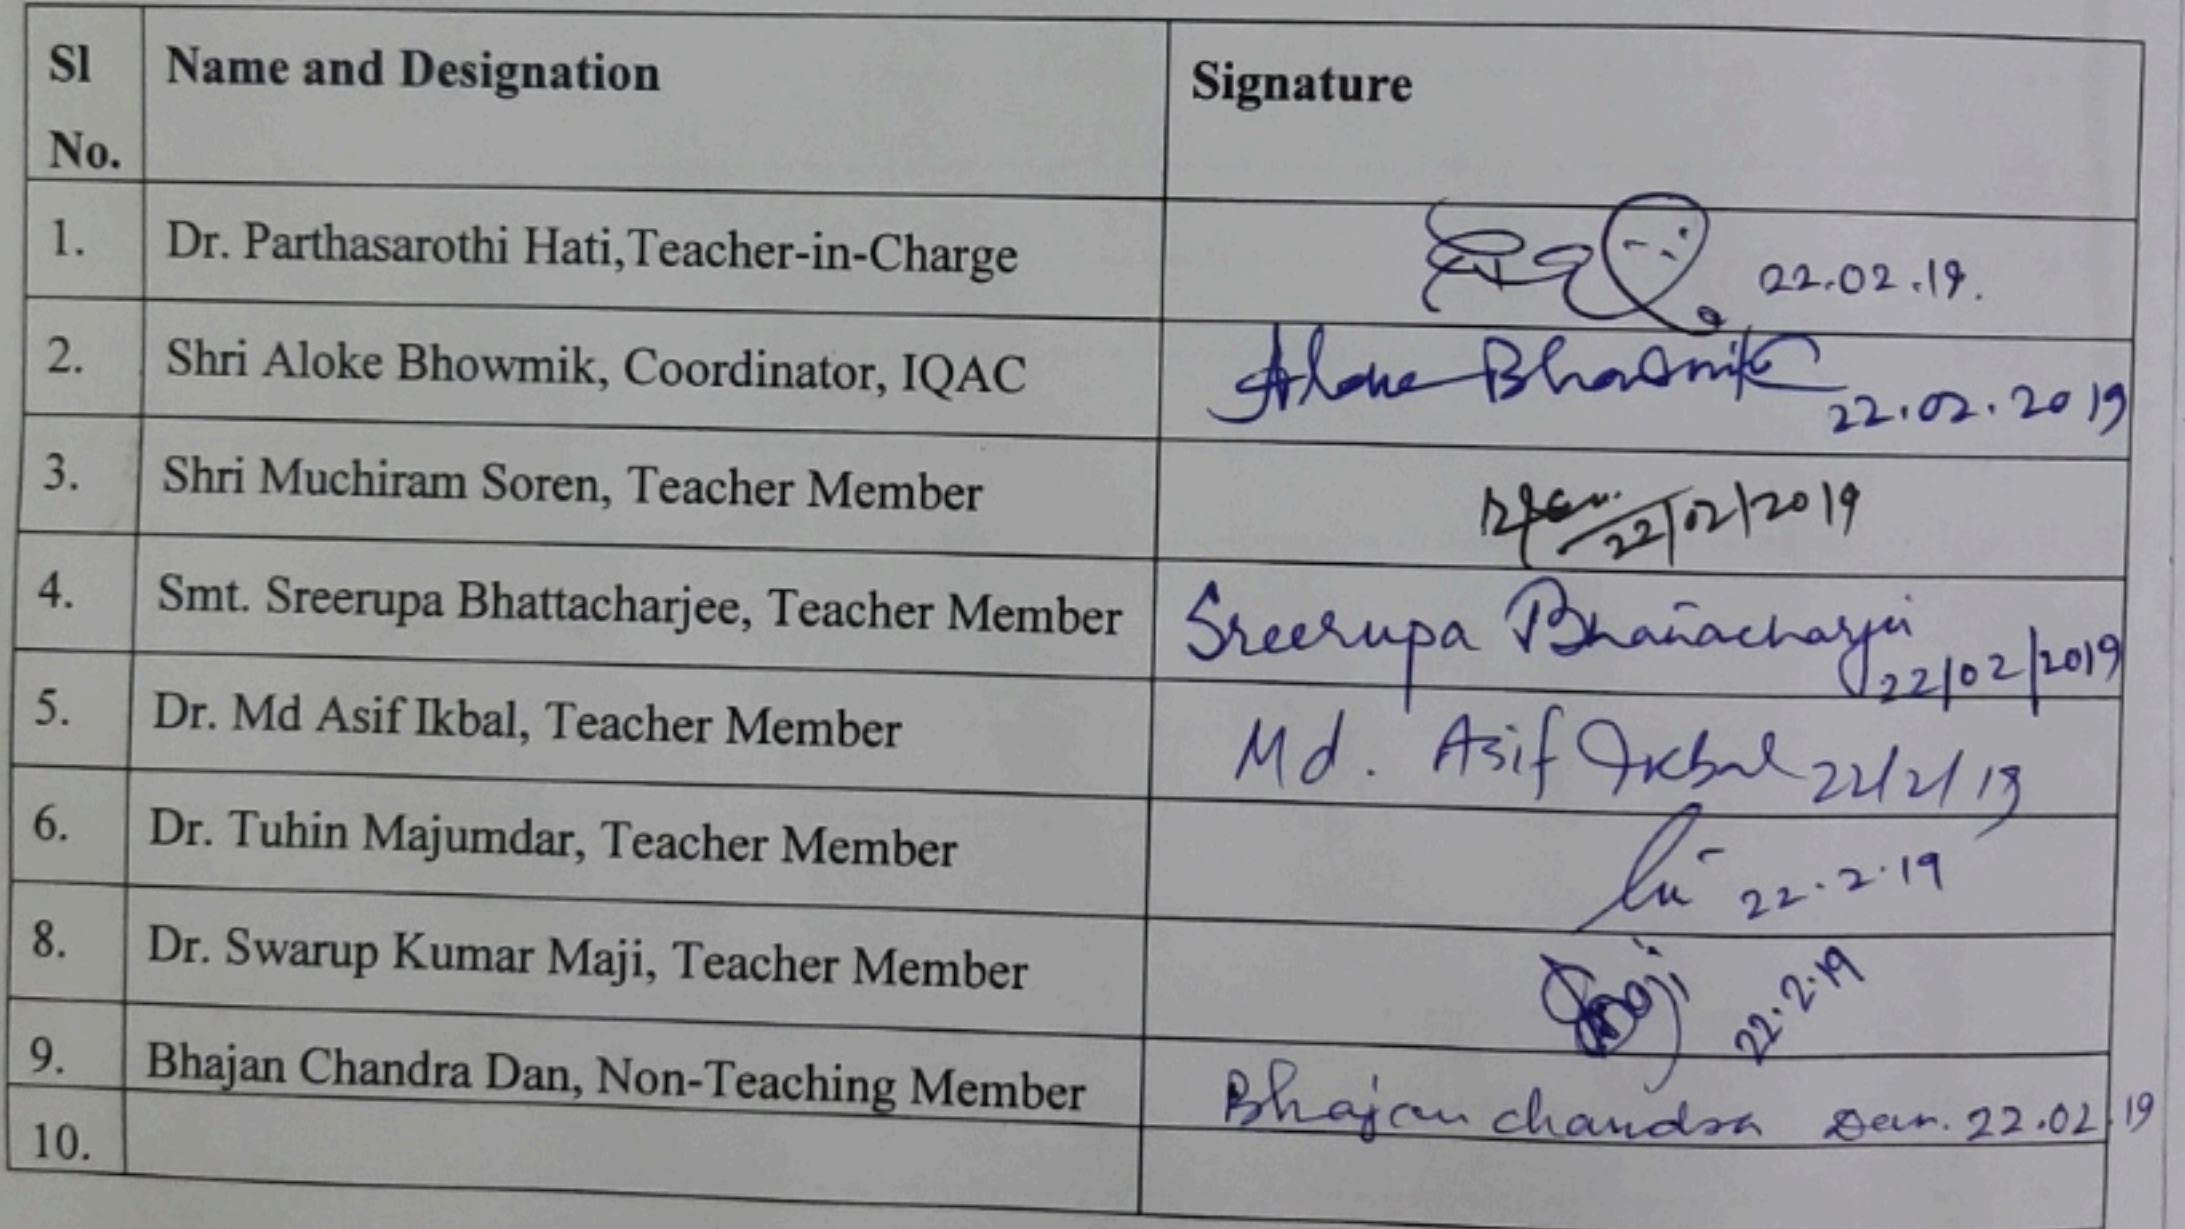 Sl No. Name and Designation Signature
1. Dr. Parthasarothi Hati,Teacher-in-Charge 22.02.19.
2. Shri Aloke Bhowmik, Coordinator, IQAC Aloke Bhowmik 22.02.2019
3. Shri Muchiram Soren, Teacher Member 22/02/2019
4. Smt. Sreerupa Bhattacharjee, Teacher Member Sreerupa Bhattacharjee 22/02/2019
5. Dr. Md Asif Ikbal, Teacher Member Md. Asif Ikbal 22/2/19
6. Dr. Tuhin Majumdar, Teacher Member 22.2.19
8. Dr. Swarup Kumar Maji, Teacher Member 22.2.19
9. Bhajan Chandra Dan, Non-Teaching Member Bhajan chandra Dan. 22.02.19
10.